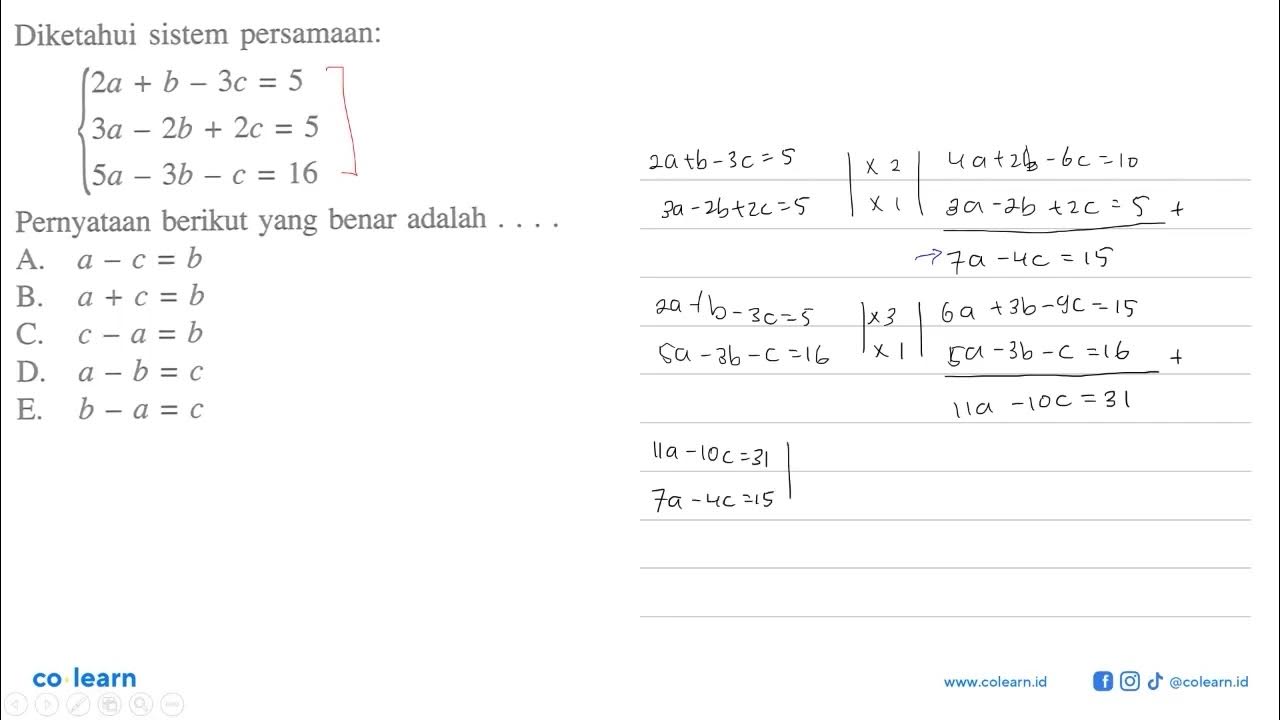 Diketahui sistem persamaan:
2a + b − 3c = 5
3a − 2b + 2c = 5
5a − 3b − c = 16
Pernyataan berikut yang benar adalah . . . .
A. a − c = b
B. a + c = b
C. c − a = b
D. a − b = c
E. b − a = c
2a+b-3c=5 | x 2 | 4a+2b-6c=10
3a-2b+2c=5 | x 1 | 3a-2b+2c=5 +
→ 7a-4c=15
2a+b-3c=5 | x3 | 6a+3b-9c=15
5a-3b-c=16 | x 1 | 5a-3b-c=16 +
11a-10c=31
11a-10c=31 |
7a-4c=15 |
co·learn
www.colearn.id @colearn.id